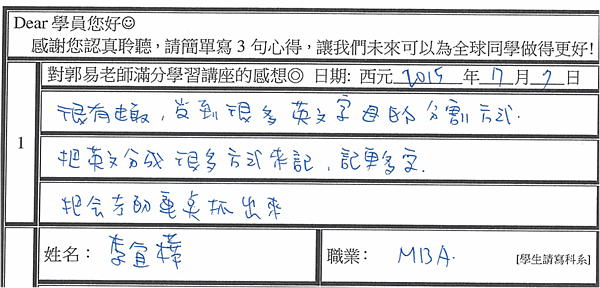 Dear 學員您好☺
感謝您認真聆聽，請簡單寫 3 句心得，讓我們未來可以為全球同學做得更好!
1
對郭易老師滿分學習講座的感想◎ 日期: 西元 2015 年 7 月 7 日
很有趣，学到很多英文字母的分割方式.
把英文分成很多方式來記，記更多字.
把会考的重点抓出來
姓名： 李宜樺
職業： MBA. [學生請寫科系]